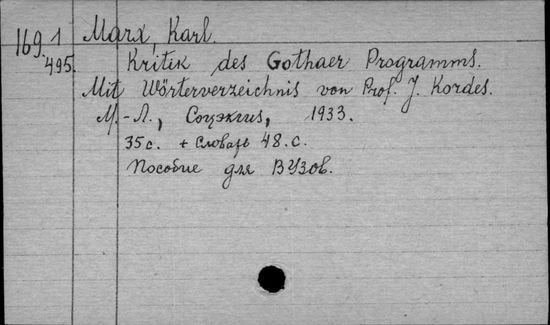 169.1 Marx, Karl.
495. Kritik des Gothaer Programms.
Mit Wörterverzeichnis von Prof. J. Kordes.
М.-Л., Соцэкгиз, 1933.
35 с. + словарь 48.с.
Пособие для ВУЗов.